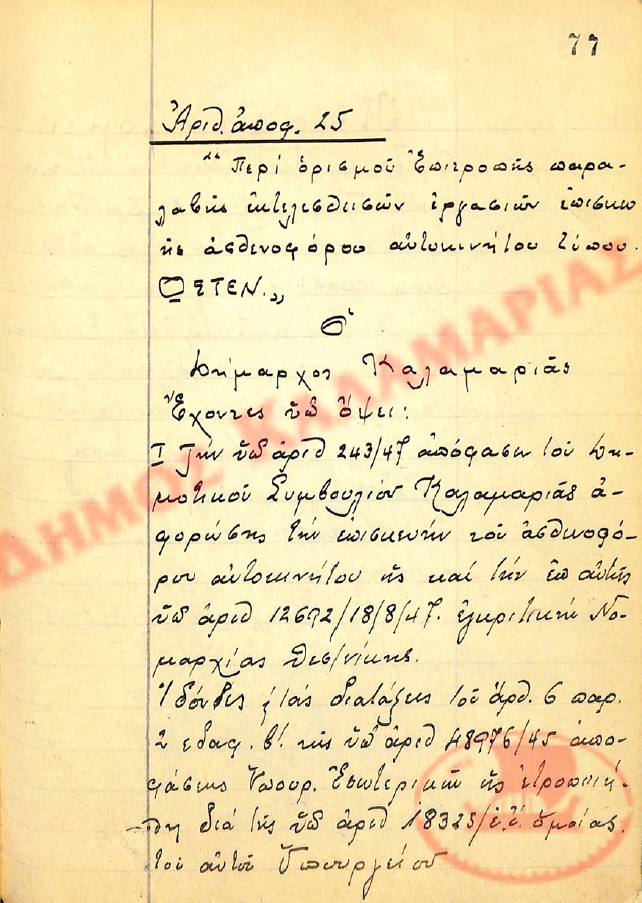 77
Ἀριθ. ἀποφ. 25
"Περί ὁρισμοῦ Ἐπιτροπῆς παρα-
λαβῆς ἐκτελεσθεισῶν ἐργασιῶν ἐπισκευ
ῆς ἀσθενοφόρου αὐτοκινήτου τύπου.
ΩΣΤΕΝ.„
Ὁ
Δήμαρχος Καλαμαριᾶς
Ἔχοντες ὑπ' ὄψει:
I Τήν ὑπ' ἀριθ 243/47 ἀπόφασιν τοῦ Δη-
μοτικοῦ Συμβουλίου Καλαμαριᾶς ἀ-
φορώσης τήν ἐπισκευήν τοῦ ἀσθενοφό-
ρου αὐτοκινήτου ὡς καί τήν ἐπ' αὐτῆς
ὑπ' ἀριθ 12692/18/8/47. ἐγκριτικήν Νο-
μαρχίας Θεσ/νίκης.
Ἰδόντες τάς διατάξεις τοῦ ἄρθ. 6 παρ.
2 εδαφ. β'. τῆς ὑπ' ἀριθ 48976/45 ἀπο-
φάσεως Ὑπουρ. Ἐσωτερικῶν ὡς ἐτροποποιή-
θη διά τῆς ὑπ' ἀριθ 18323/ἐ.ἔ. ὁμοίας.
τοῦ αὐτοῦ Ὑπουργείου
ΔΗΜΟΣ ΚΑΛΑΜΑΡΙΑΣ